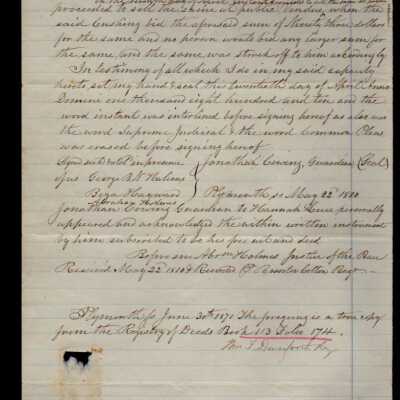 proceeded to sell the same at public vendue, when the
said Cushing bid the aforesaid sum of thirty three dollars
for the same and no person would bid any larger sum for
the same, and the same was struck off to him accordingly.
In testimony of all which I do in my said capacity
hereto set my hand & seal this twentieth day of April Anno
Domini one thousand eight hundred and ten and the
word instant was interlined before signing hereof as also was
the word Supreme Judicial & the word Common Pleas
was erased before signing hereof
Signed sealed in presence Jonathan Guardian (Seal)
of us George B. N. Holmes
Beza Hayward Plymouth ss May 22d 1810
Jonathan Guardian to Hannah personally
appeared and acknowledged the within written instrument
by him subscribed to be his free act and deed
Before me Abrm Holmes Justice of the Peace
Received May 22d 1810 & Recorded Pr Rossiter Cotton Regr
Plymouth ss June 30th 1871 The foregoing is a true copy
from the Registry of Deeds Book 113 Folio 174.
Wm S. Danforth Reg